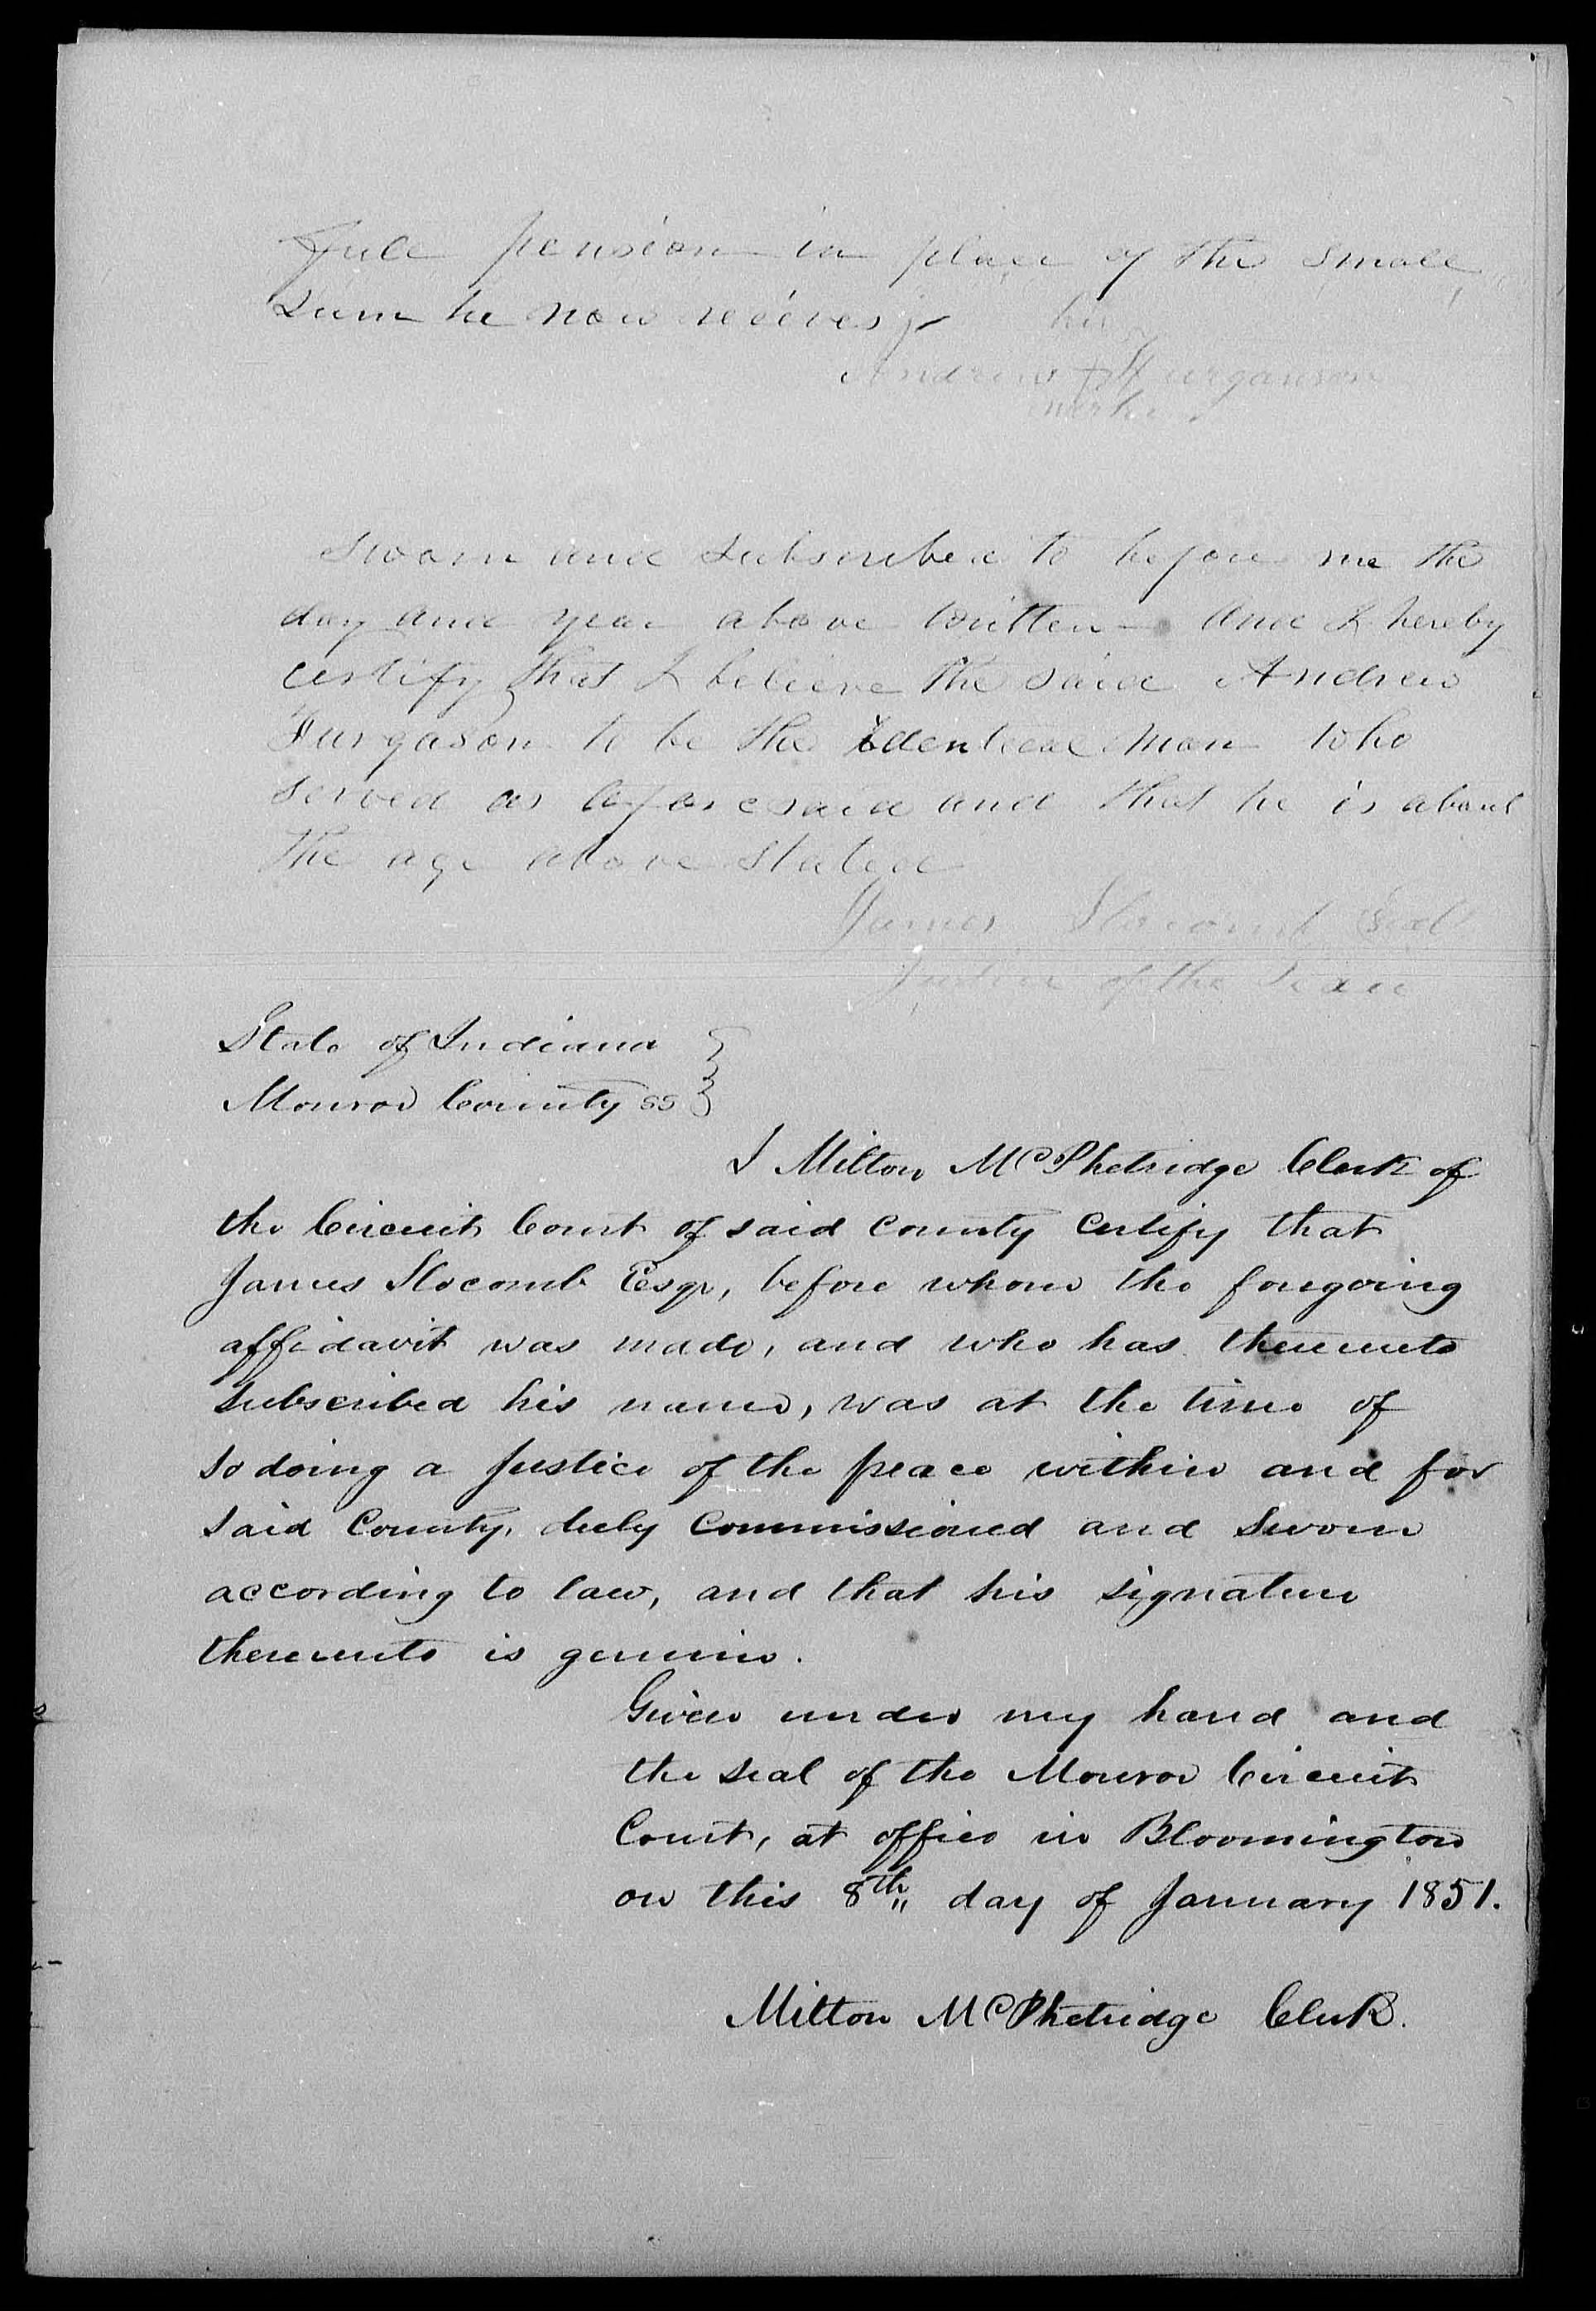 Full pension in place of the small
Sum he now receives
his
Andrew X Furgauson
mark
Sworn and Subscribed to before me the
day and year above written - And I hereby
certify that I believe the said Andrew
Furgason to be the Identical man who
served as aforesaid and that he is about
the age above stated
James Slocomb Seal
Justice of the Peace
State of Indiana
Monroe County ss
I Milton McPhetridge Clerk of
the Circuit Court of said County Certify that
James Slocomb Esqr, before whom the foregoing
affidavit was made, and who has thereunto
subscribed his name, was at the time of
so doing a Justice of the peace within and for
said County, duly Commissioned and Sworn
according to law, and that his signature
thereunto is genuine.
Given under my hand and
the seal of the Monroe Circuit
Court, at office in Bloomington
on this 8th day of January 1851.
Milton McPhetridge Clerk.